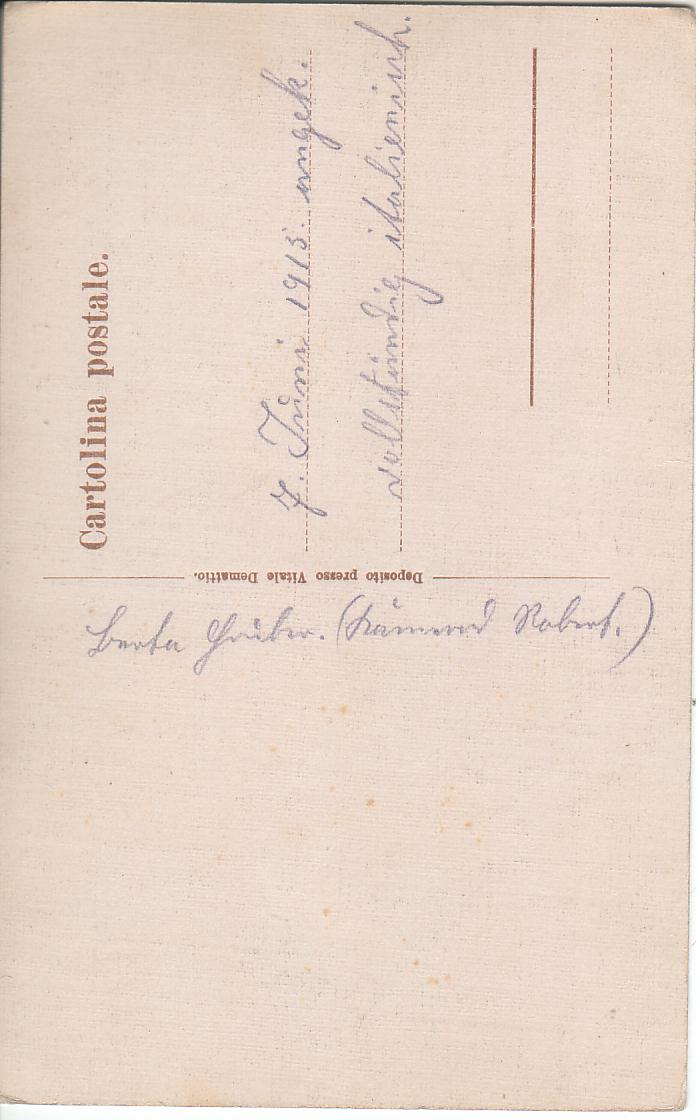 Cartolina postale.
7. Juni 1915. angek.
vollständig italienisch.
Deposito presso Vitale Demattio.
Berta Gruber. ( Robert.)